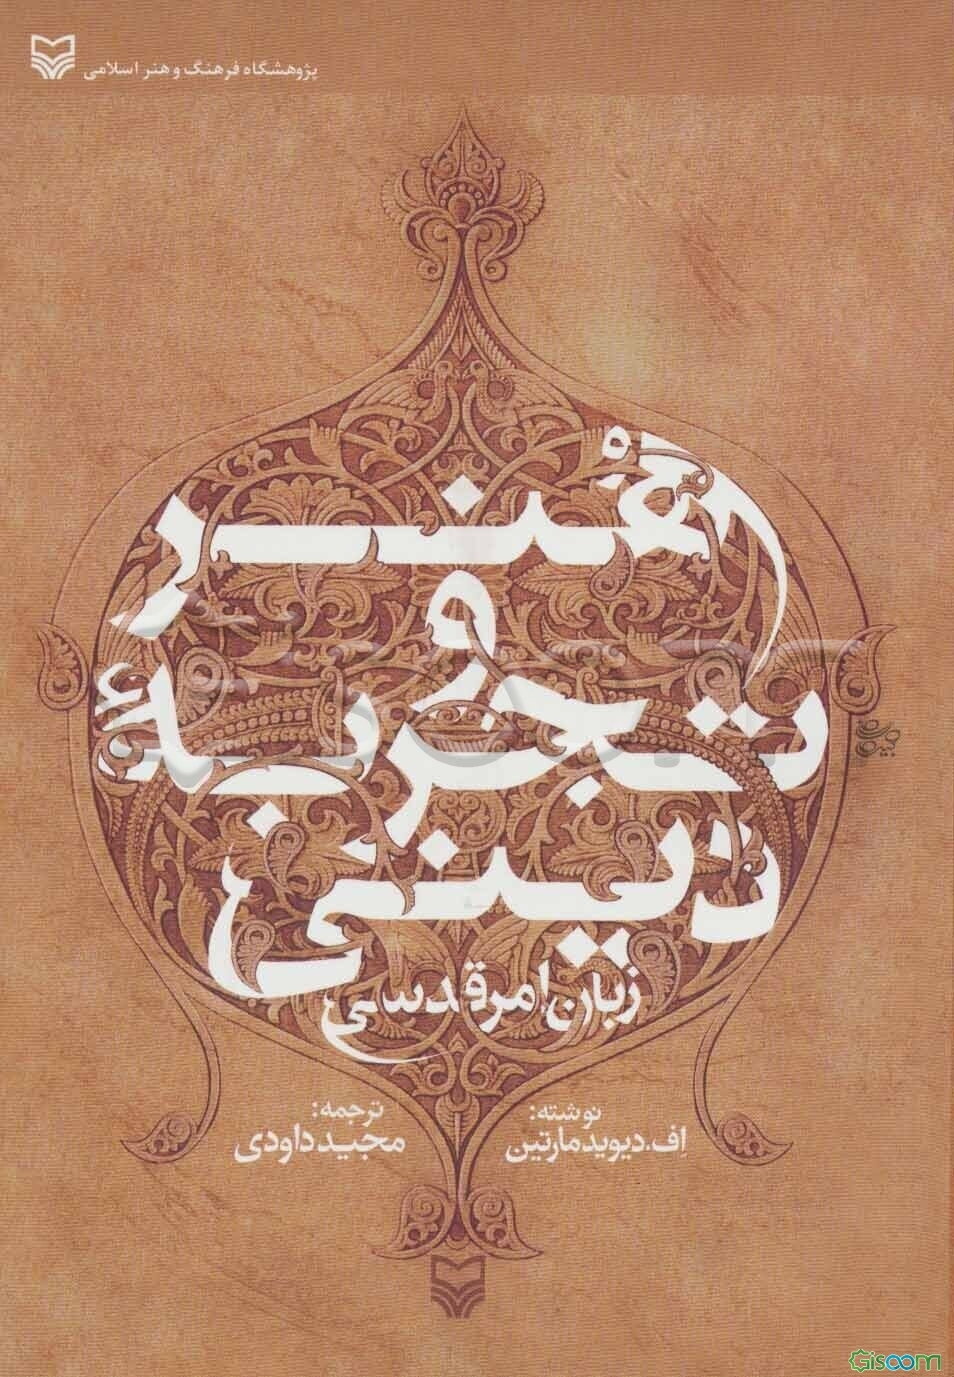 پژوهشگاه فرهنگ و هنر اسلامی
هنر
و
تجربۀ
دینی
زبان امر قدسی
نوشته:
اِف. دیوید مارتین
ترجمه:
مجید داودی
Gisoom